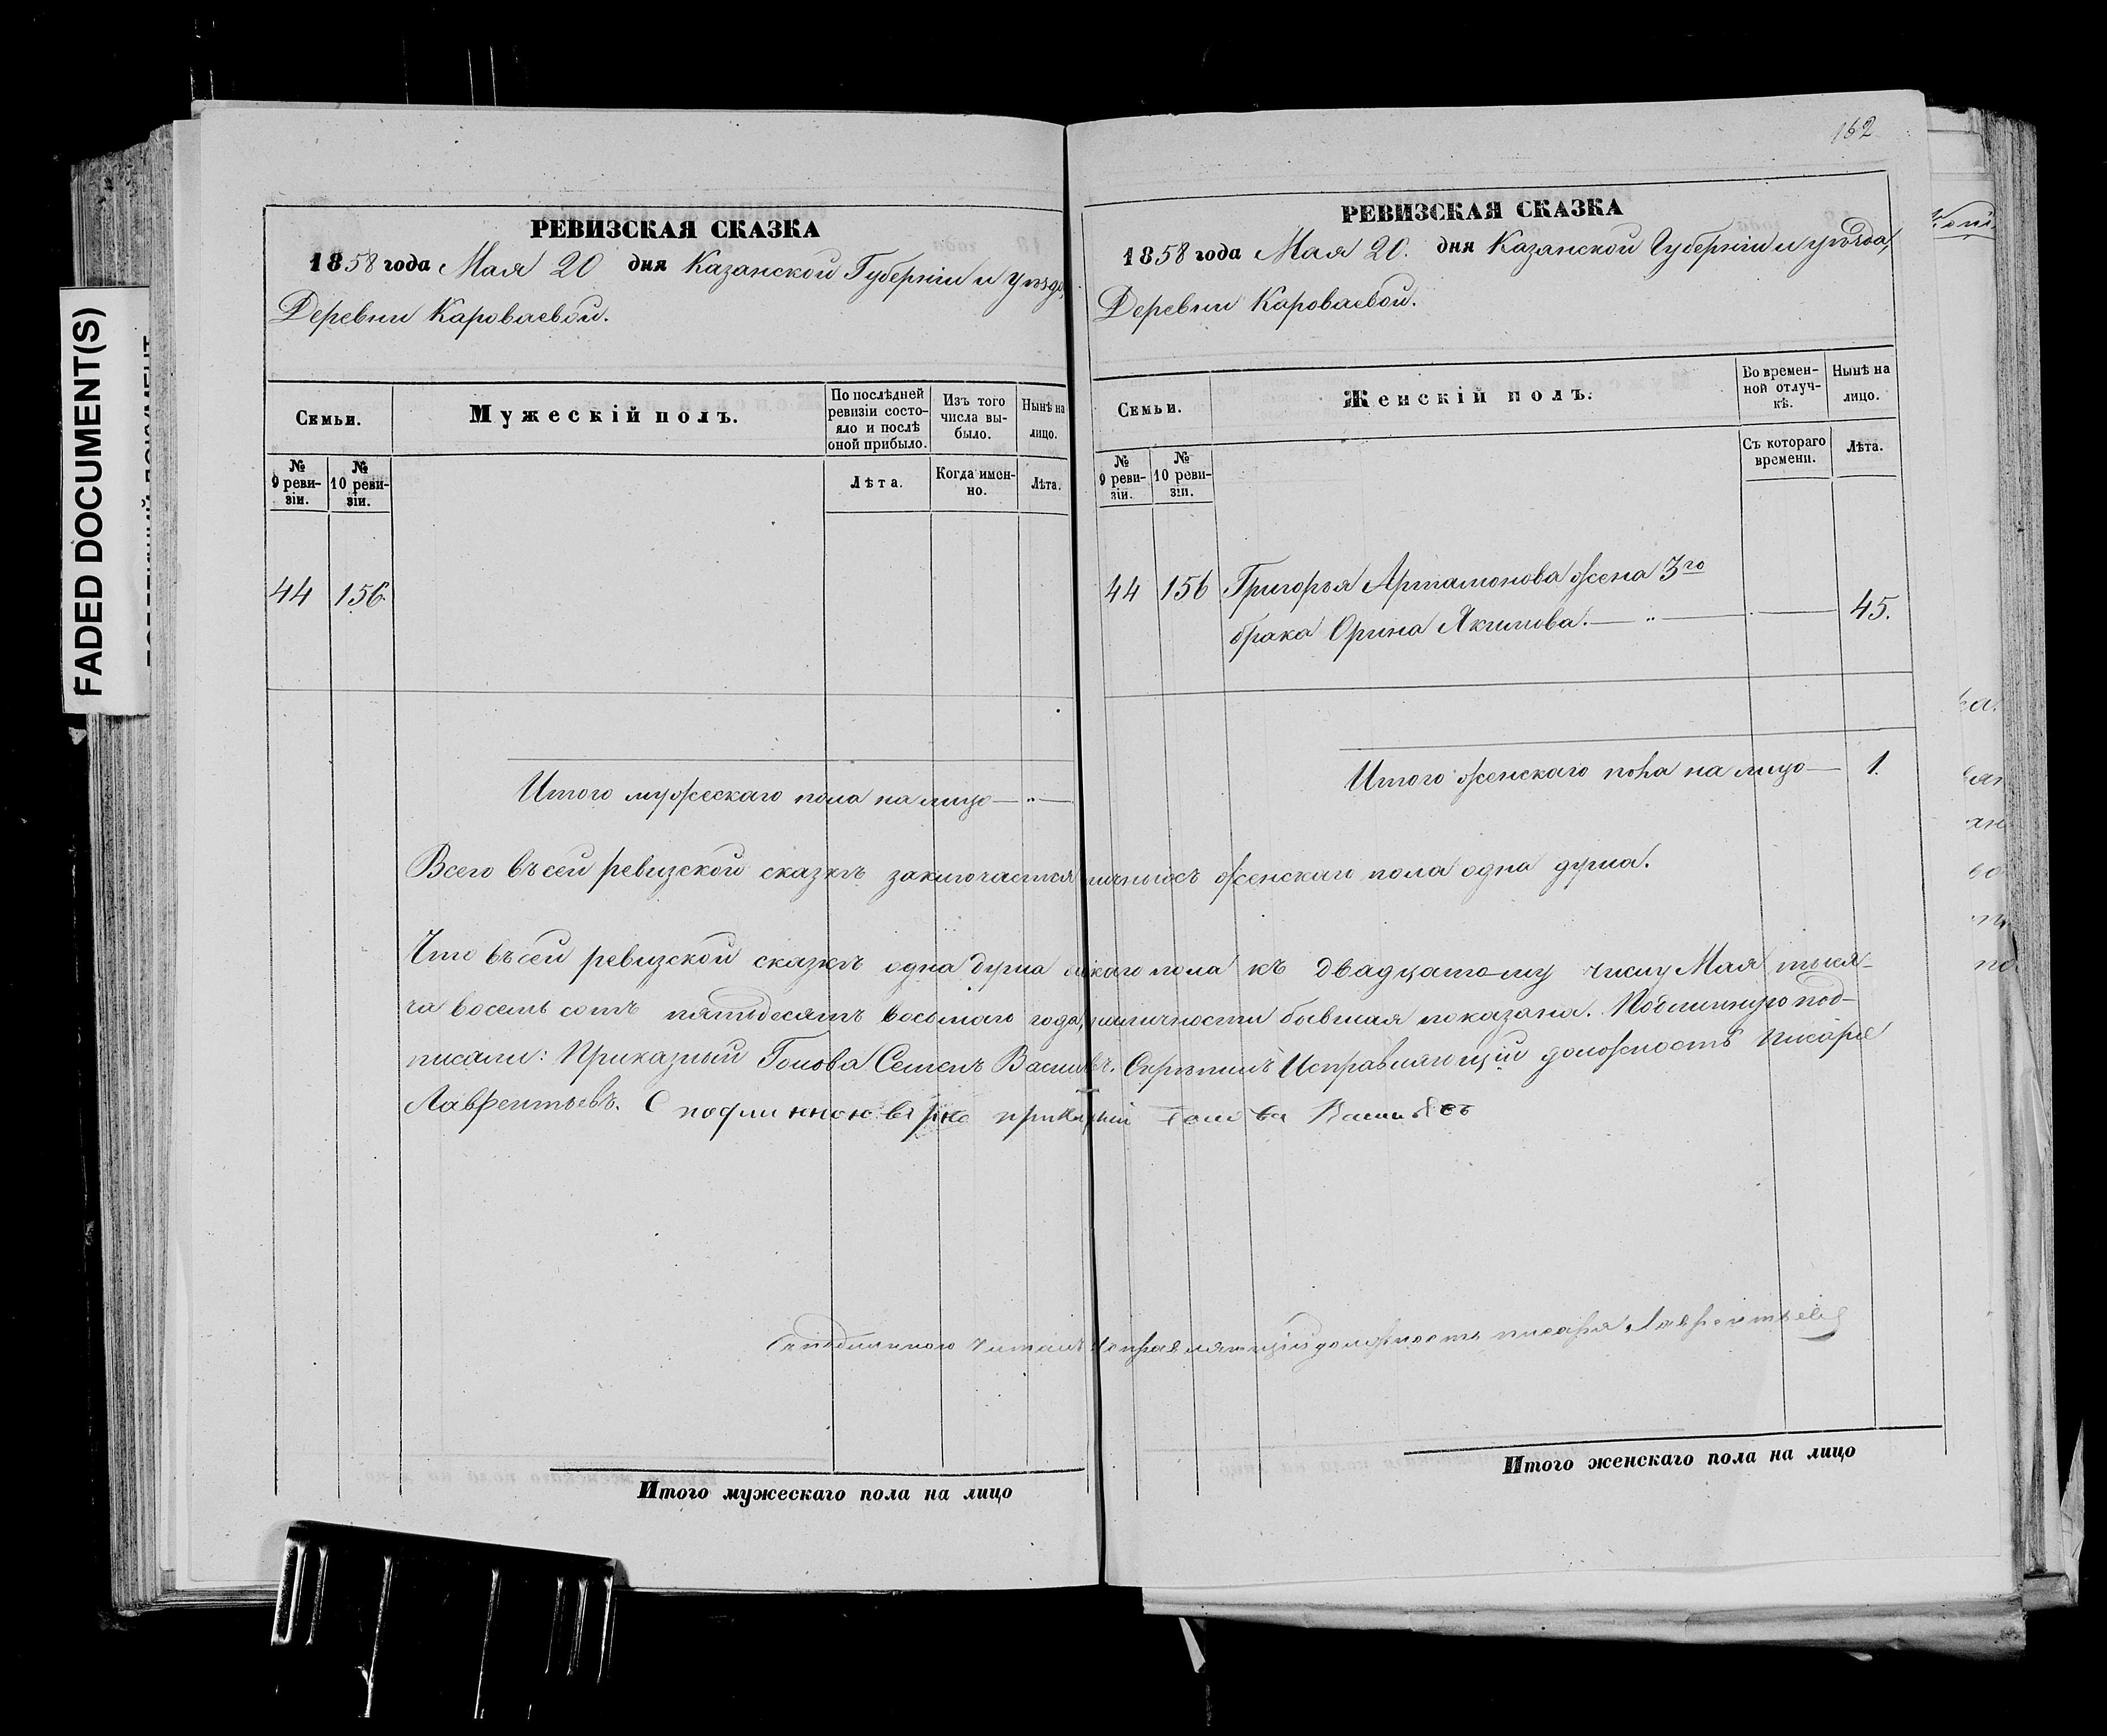 FADED DOCUMENT(S)
РЕВИЗСКАЯ СКАЗКА
1858 года Мая 20 дня Казанской Губерніи и уѣзда,
Деревни Кароваевой.
Семьи.
Мужескій полъ.
По послѣдней ревизіи состо-
яло и послѣ оной прибыло.
Изъ того числа вы-
было.
Нынѣ на лицо.
№ 9 реви-
зіи.
№ 10 реви-
зіи.
Лѣта.
Когда имен-
но.
Лѣта.
44 156.
Итого мужескаго пола на лицо — „ —
162
РЕВИЗСКАЯ СКАЗКА
1858 года Мая 20. дня Казанской Губерніи и уѣзда,
Деревни Кароваевой.
Семьи.
Женскій полъ.
Во времен-
ной отлуч-
кѣ.
Нынѣ на лицо.
№ 9 реви-
зіи.
№ 10 реви-
зіи.
Съ котораго времени.
Лѣта.
44 156 Григорья Артамонова жена 3го
брака Орина Якимова. — „ — 45.
Итого женскаго пола на лицо — 1.
Всего въ сей ревизской сказкѣ заключается женскаго пола одна душа.
Что въ сей ревизской сказкѣ одна душа пола къ двадцатому числу Мая тыся-
ча восемь сотъ пятьдесятъ восьмаго года, бывшая показана. Подлинную под-
писали: Приказный Голова Семенъ Скрѣпилъ Исправляющій должность Писаря
Лаврентьевъ. С подлинною верно приказный Голова Васильевъ
читалъ Исправляющій должность писаря Лаврентьевъ
Итого мужескаго пола на лицо
Итого женскаго пола на лицо